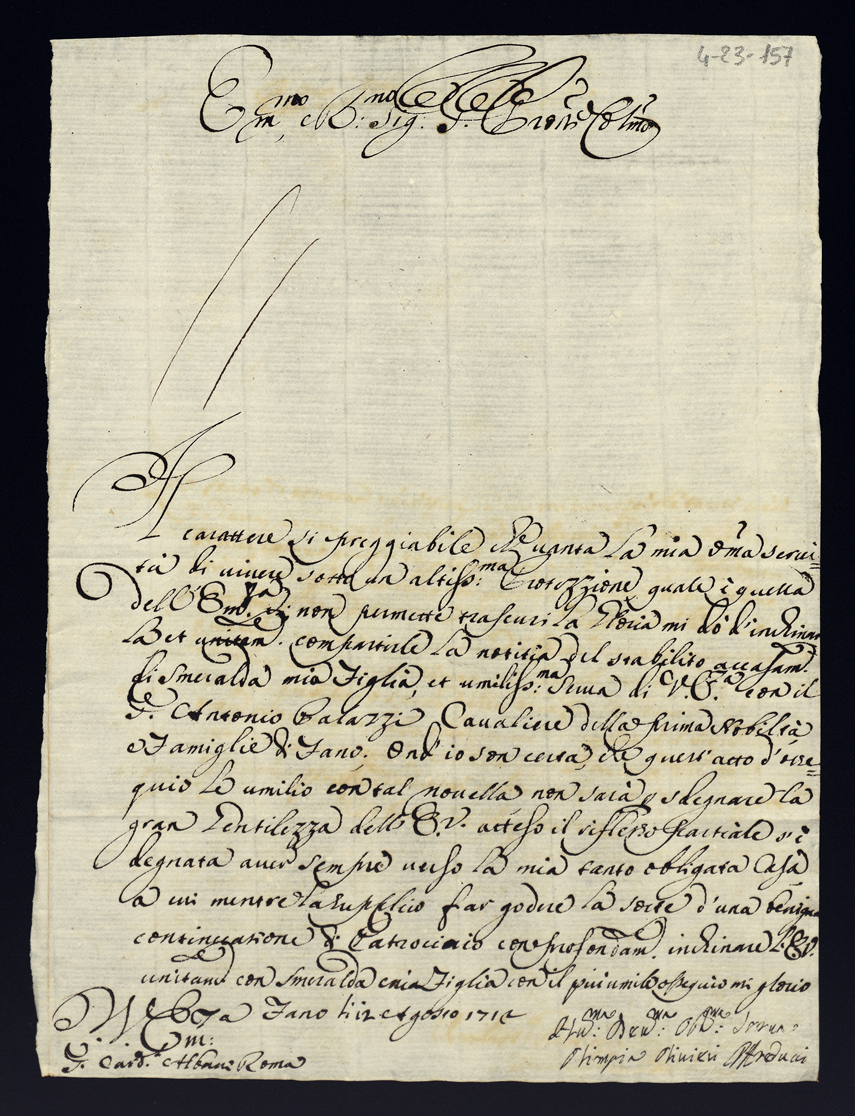 4-23-157
Em.mo e R.mo Sig. S. Prone Colmo
Il carattere si preggiabile che vanta la mia oma servi=
tù di vivere sotto un altiss:ma Protezzione, quale è quella
dell' Em.za non permette trascuri la gloria mi dò d'inchinar
la et unitam. compartirle la notitia del stabilito accasam.
di Smeralda mia Figlia, et umiliss:ma Serva di V. E.za con il
S. Antonio Palazzi Cavaliere della prima Nobiltà
e Famiglie di Fano; Ond' io son certa, che quest' atto d'osse=
quio le umilio con tal novella non sarà p sdegnare la
gran Gentilezza dell' E. V. atteso il riflesso parziale s'è
degnata aver sempre verso la mia tanto obligata Casa
a cui mentre la supplico far godere la sorte d'una benigna
continuatione di Patrocinio con profondam. inchinare l' E. V.
unitam. con Smeralda mia Figlia con il più umile ossequio mi glorio
Di V. E.za Fano li 12 Agosto 1712
Em:
S. Card. Albani Roma
Hu.ma Dev.ma Obl.ma Serva
Olimpia Olivieri Marducci